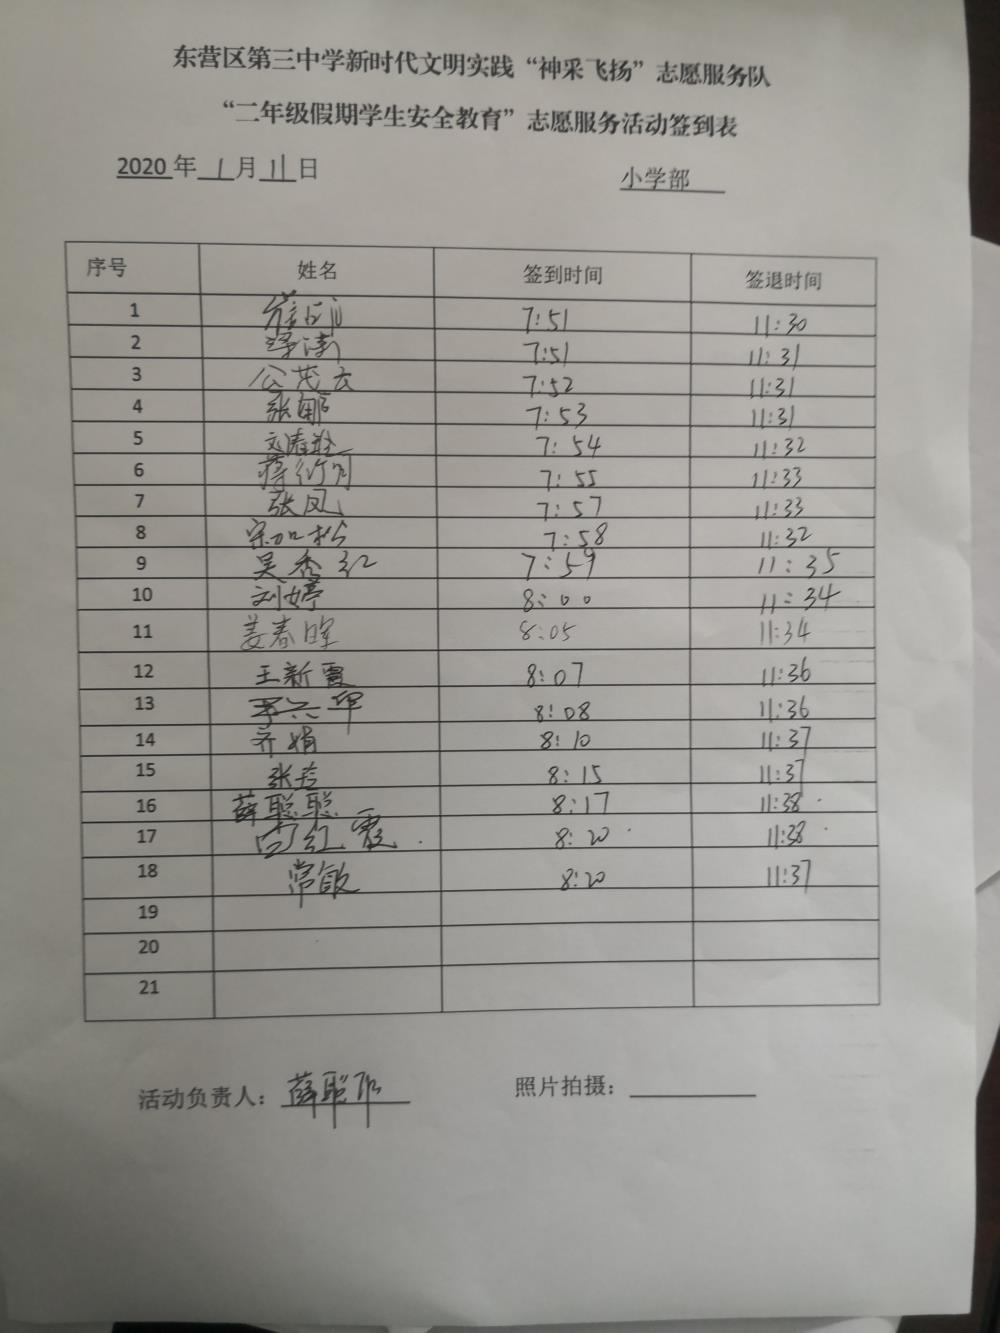 东营区第三中学新时代文明实践“神采飞扬”志愿服务队
“二年级假期学生安全教育”志愿服务活动签到表
2020 年 1 月 11 日 小学部
序号 姓名 签到时间 签退时间
1 7:51 11:30
2 7:51 11:31
3 公茂云 7:52 11:31
4 张娜 7:53 11:31
5 7:54 11:32
6 7:55 11:33
7 张凤 7:57 11:33
8 宋加松 7:58 11:32
9 吴秀红 7:59 11:35
10 刘婷 8:00 11:34
11 姜春晖 8:05 11:34
12 王新霞 8:07 11:36
13 8:08 11:36
14 齐娟 8:10 11:37
15 8:15 11:37
16 薛聪聪 8:17 11:38
17 红霞 8:20 11:38
18 常敏 8:20 11:37
19
20
21
活动负责人：薛聪聪 照片拍摄：